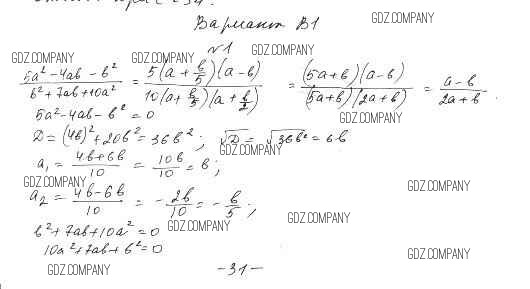 Вариант В1
GDZ.COMPANY
№1
GDZ.COMPANY GDZ.COMPANY GDZ.COMPANY
(5a² - 4ab - b²)/(b² + 7ab + 10a²) = 5(a + b/5)(a - b)/10(a + b/5)(a + b/2) = (5a + b)(a - b)/(5a + b)(2a + b) = (a - b)/(2a + b).
5a² - 4ab - b² = 0
GDZ.COMPANY
D = (4b)² + 20b² = 36b²; √D = √36b² = 6b
GDZ.COMPANY
a₁ = (4b + 6b)/10 = 10b/10 = b;
GDZ.COMPANY GDZ.COMPANY
a₂ = (4b - 6b)/10 = -2b/10 = -b/5;
GDZ.COMPANY GDZ.COMPANY
b² + 7ab + 10a² = 0
10a² + 7ab + b² = 0
GDZ.COMPANY
GDZ.COMPANY
- 31 -